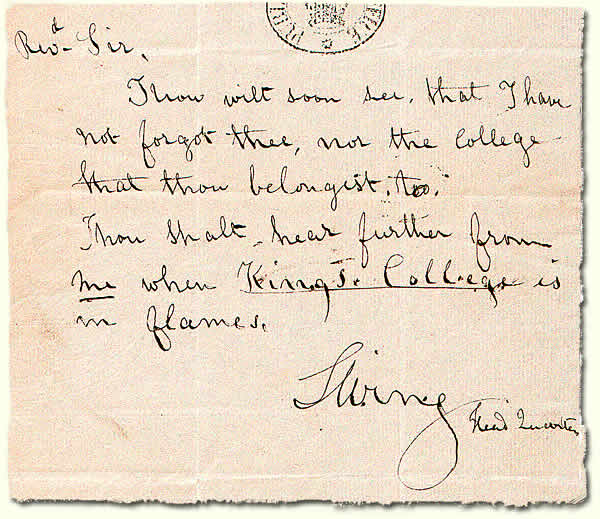 Revd Sir,
Thou wilt soon see, that I have
not forgot thee, nor the College
that thou belongist, too.
Thou shalt hear further from
me when King's College is
in flames.
Swing
Head Quarters